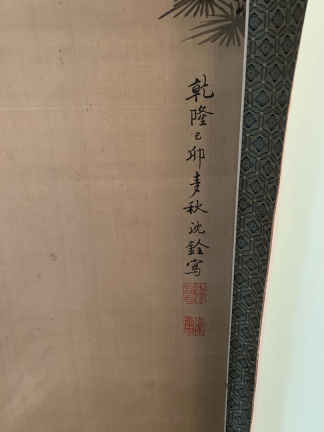 乾隆己卯麦秋沈銓寫